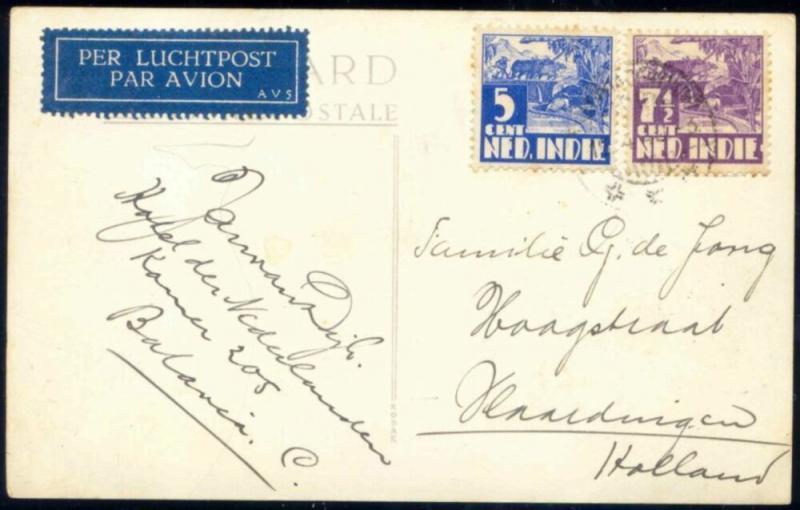 PER LUCHTPOST
PAR AVION
AVS
ARD
POSTALE
5
CENT
NED. INDIE
7½
CENT
NED. INDIE
Hotel der Nederlanden
Kamer 205
Batavia. C.
Familie G. de Jong
Hoogstraat
Vlaardingen
Holland
KODAK